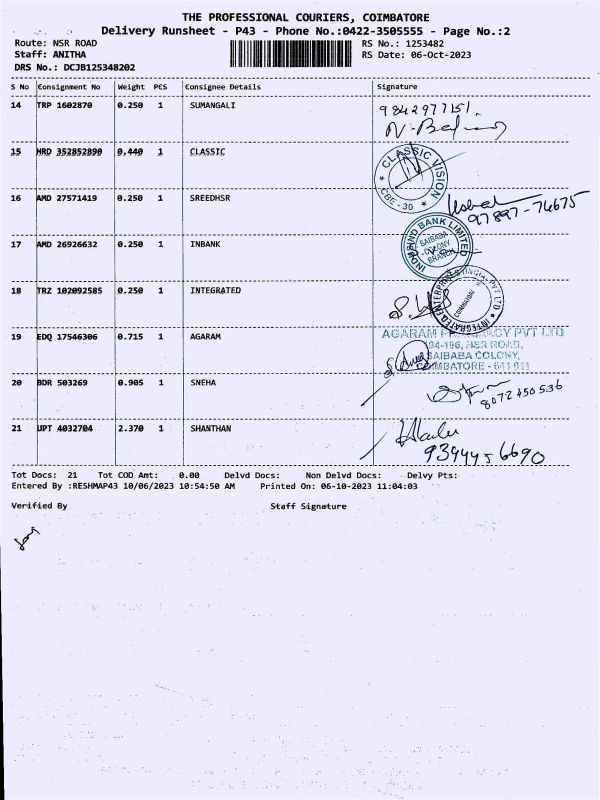 THE PROFESSIONAL COURIERS, COIMBATORE
Delivery Runsheet - P43 - Phone No.:0422-3505555 - Page No.:2
Route: NSR ROAD RS No.: 1253482
Staff: ANITHA RS Date: 06-Oct-2023
DRS No.: DCJB125348202
S No Consignment No Weight PCS Consignee Details Signature
14 TRP 1602870 0.250 1 SUMANGALI
9842977151.
15 MRD 352852890 0.440 1 CLASSIC
CLASSIC VISION
CBE - 30
16 AMD 27571419 0.250 1 SREEDHSR
97897-74675
17 AMD 26926632 0.250 1 INBANK
INDUSIND BANK LIMITED
SAIBABA
COLONY
BRANCH
18 TRZ 102092585 0.250 1 INTEGRATED
INTEGRATED ENTERPRISES (INDIA) PVT LTD
COIMBATORE
19 EDQ 17546306 0.715 1 AGARAM
AGARAM PVT LTD
94-196, NSR ROAD,
SAIBABA COLONY,
COIMBATORE - 641 011
20 BDR 503269 0.905 1 SNEHA
8072450536
21 UPT 4032704 2.370 1 SHANTHAN
9394456690
Tot Docs: 21 Tot COD Amt: 0.00 Delvd Docs: Non Delvd Docs: Delvy Pts:
Entered By :RESHMAP43 10/06/2023 10:54:50 AM Printed On: 06-10-2023 11:04:03
Verified By Staff Signature